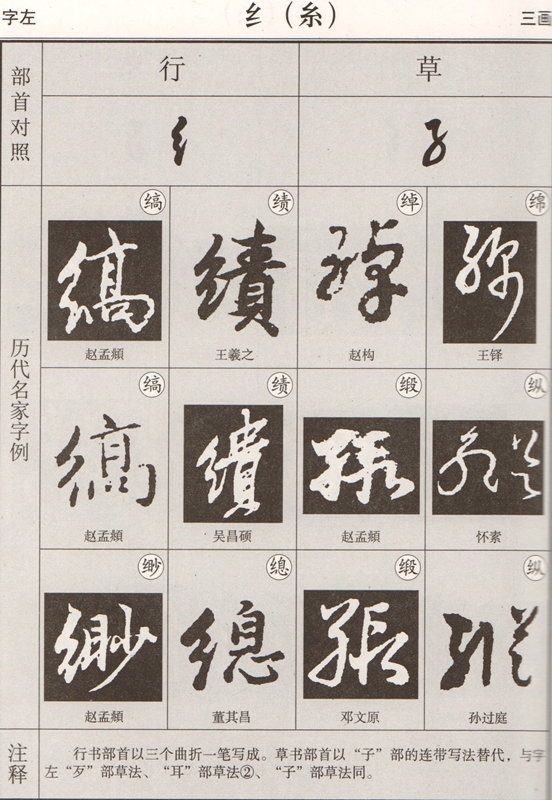 字左
纟（糸）
三画
部首对照
行
草
历代名家字例
缟
绩
绰
绵
赵孟頫
王羲之
赵构
王铎
缟
绩
缎
纵
赵孟頫
吴昌硕
赵孟頫
怀素
缈
总
缎
纵
赵孟頫
董其昌
邓文原
孙过庭
注释
行书部首以三个曲折一笔写成。草书部首以“子”部的连带写法替代，与字
左“歹”部草法、“耳”部草法②、“子”部草法同。